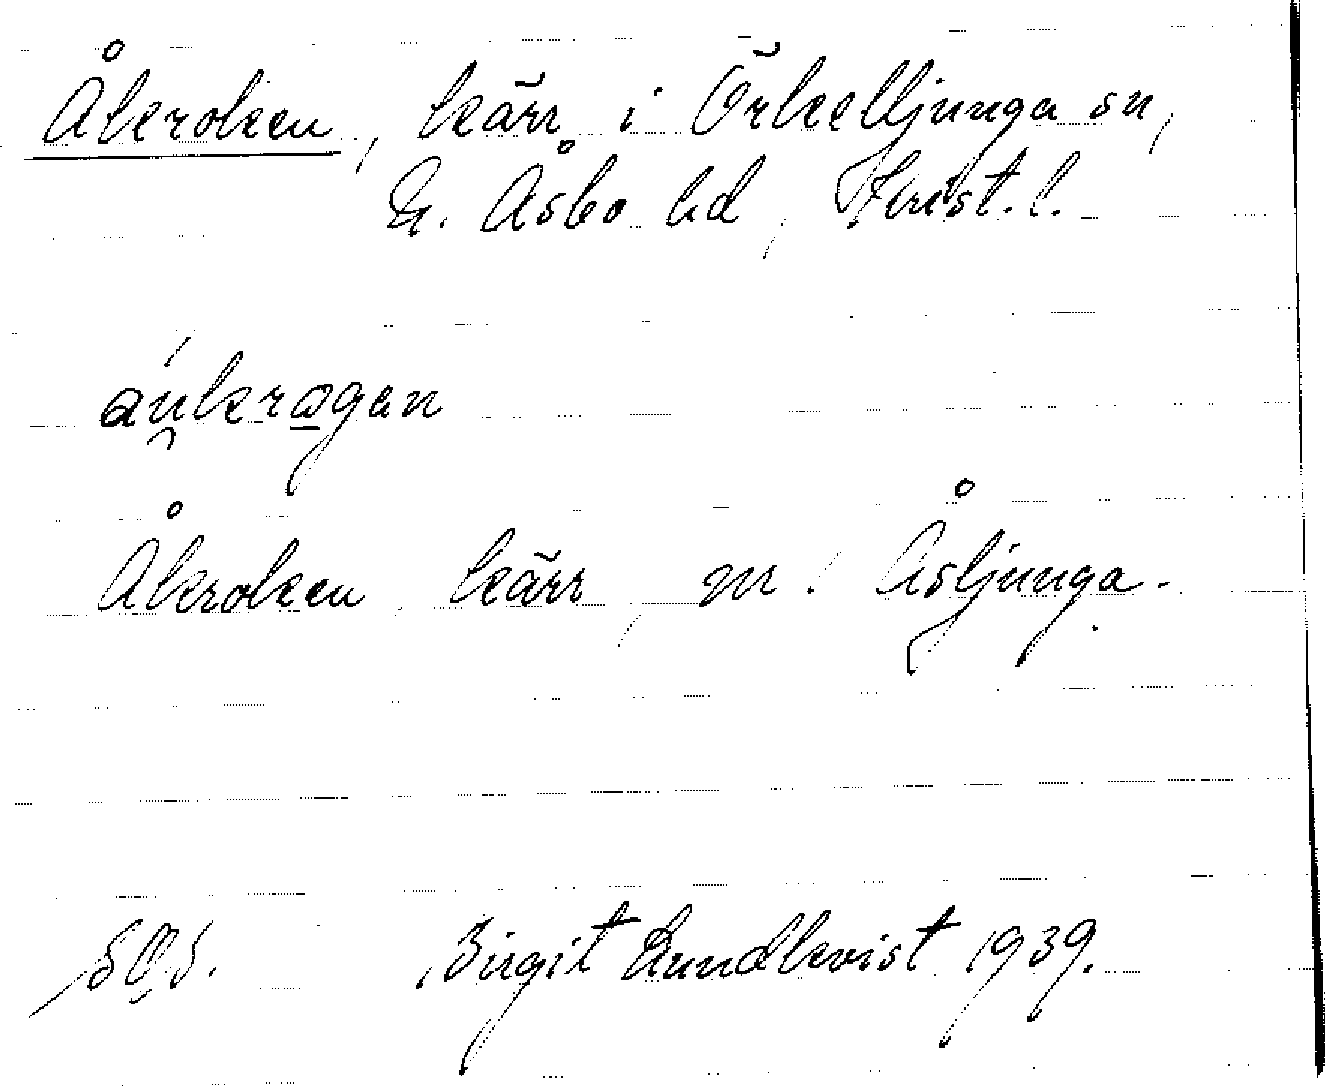 Åkroken, kärr i Örkelljunga sn,
N. Åsbo hd, Krist. l.
áu̯krogan
Åkroken kärr, nr. Åsljunga.
Birgit Lundkvist 1939.